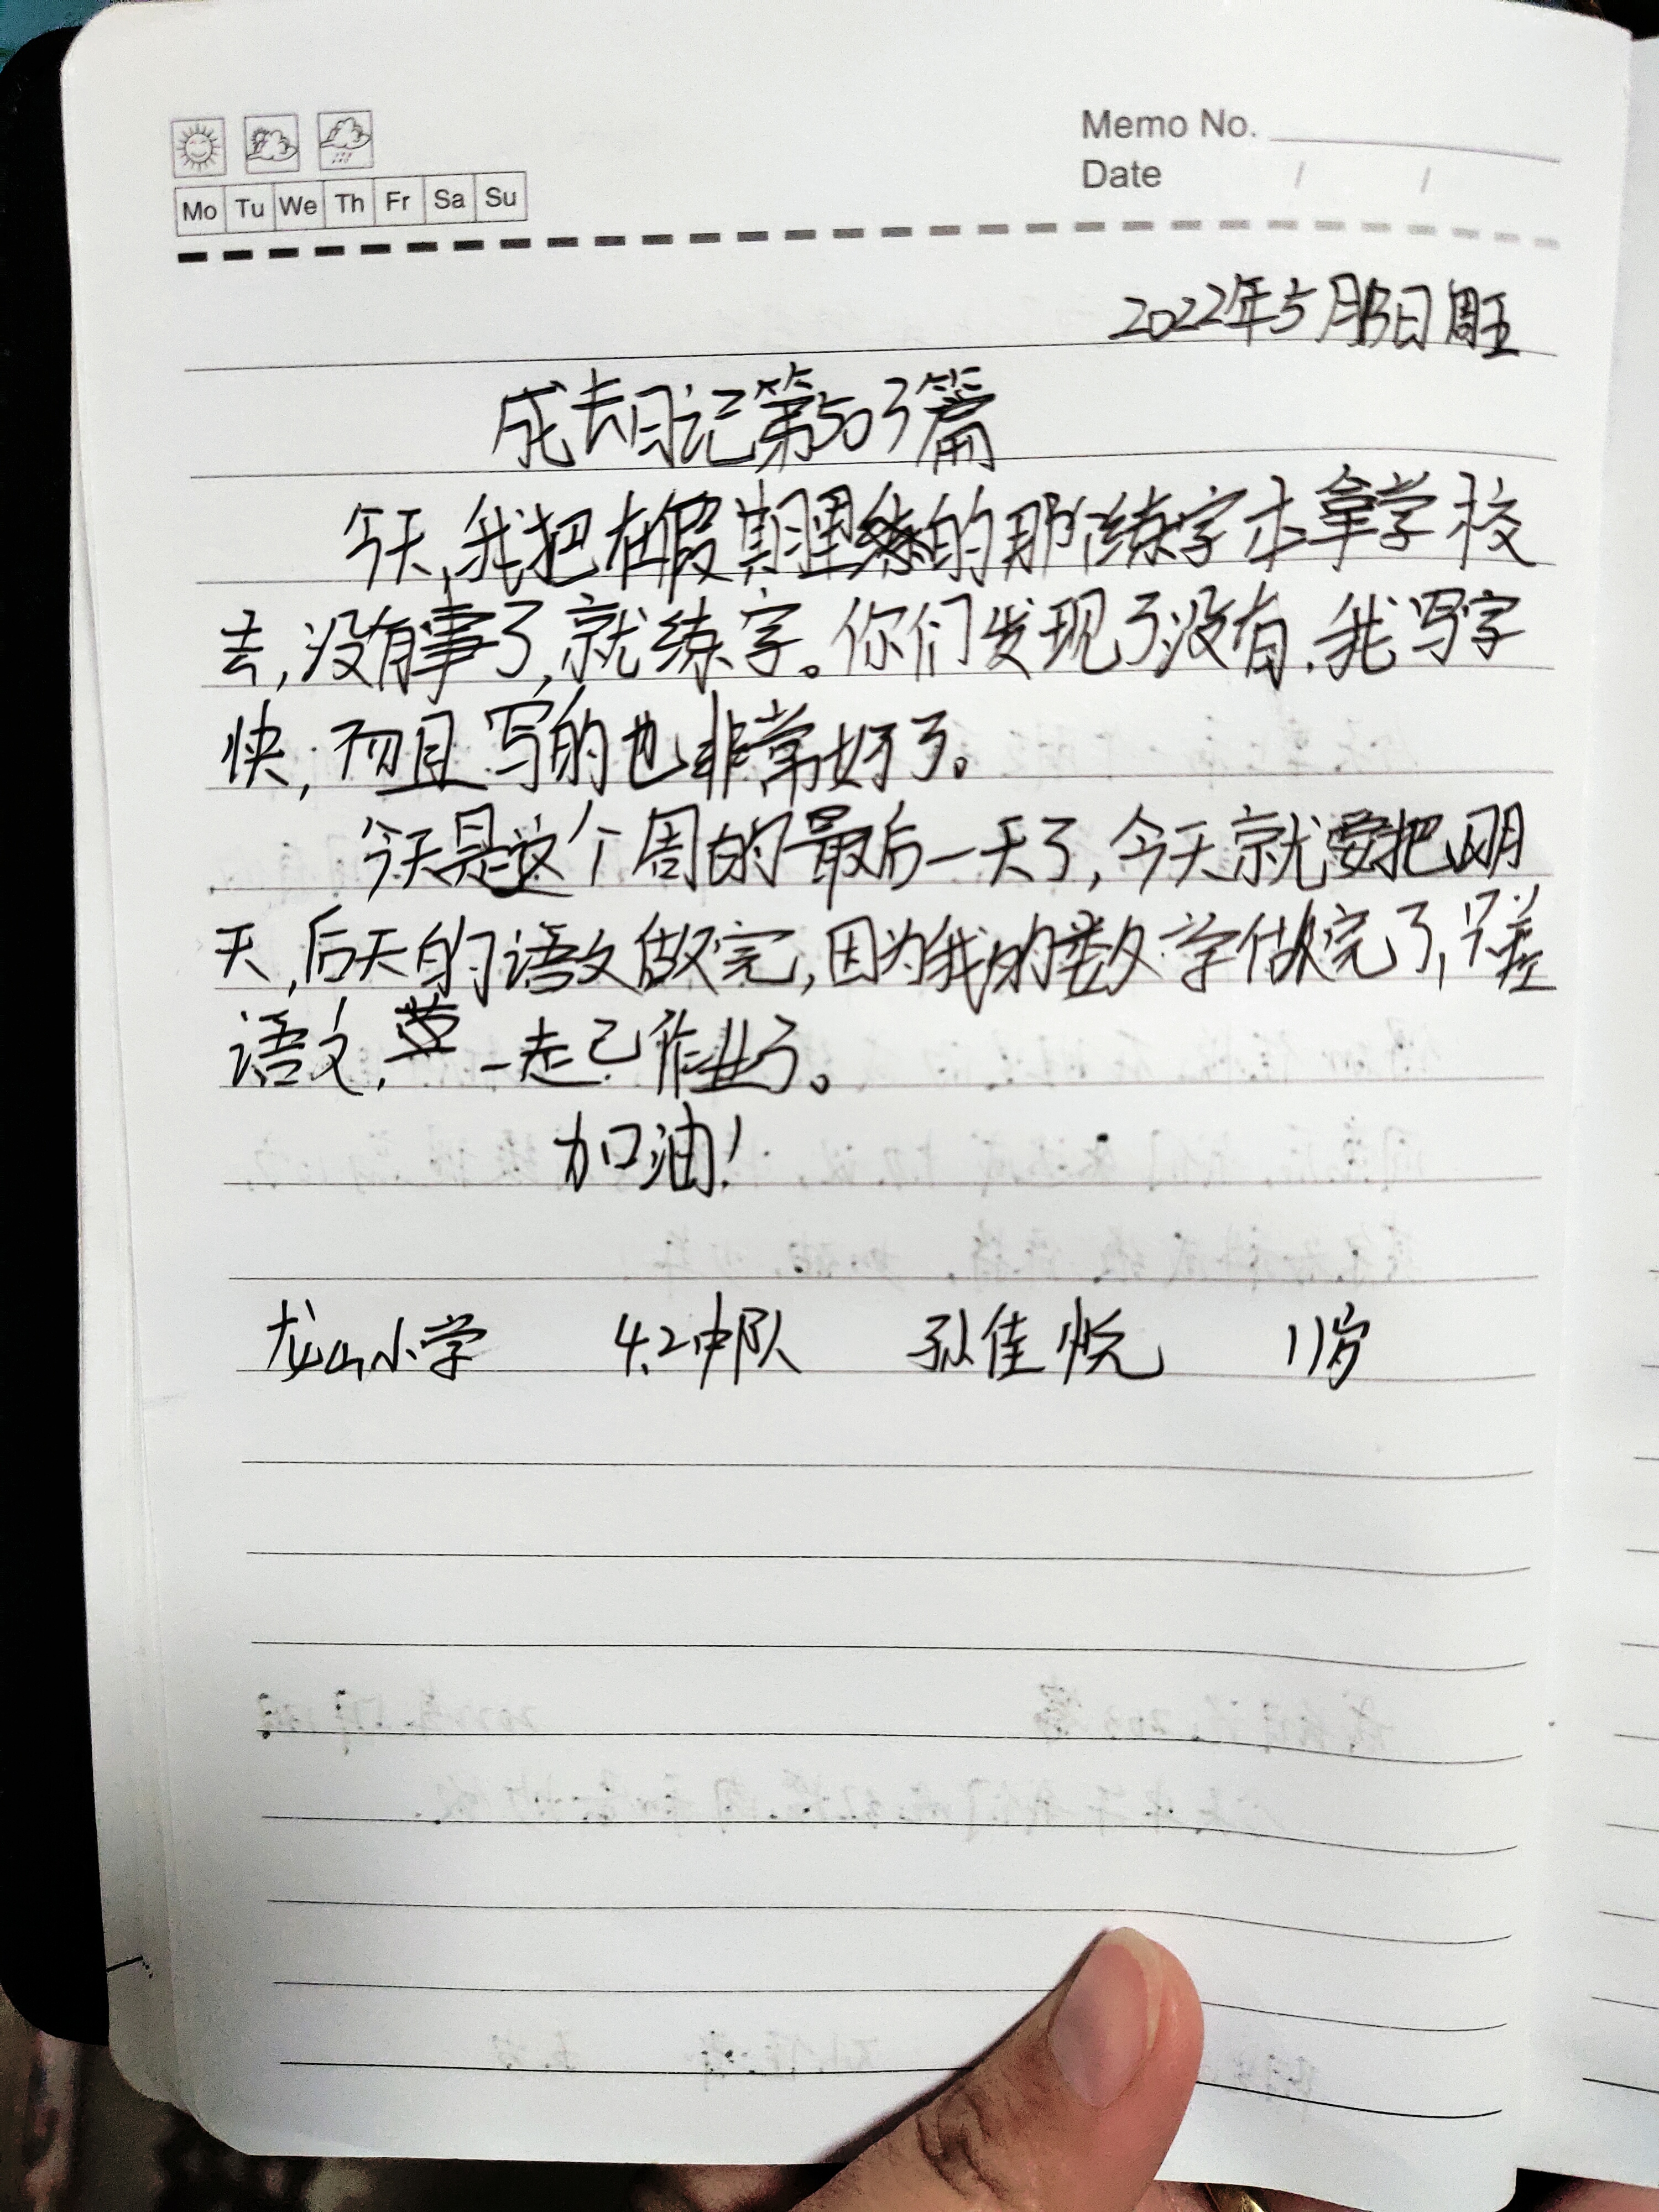 Memo No.
Mo Tu We Th Fr Sa Su
Date / /
2022年5月13日周五
成长日记第503篇
今天,我把在假期里练的那信练字本拿学校
去,没有事了,就练字。你们发现了没有,我写字
快,而且写的也非常好了。
今天是这个周的最后一天了,今天就要把明
天,后天的语文做完,因为我的数学做完了,只差
语文,一走己作业了。
加油!
龙山小学 4.2中队 孙佳悦 11岁